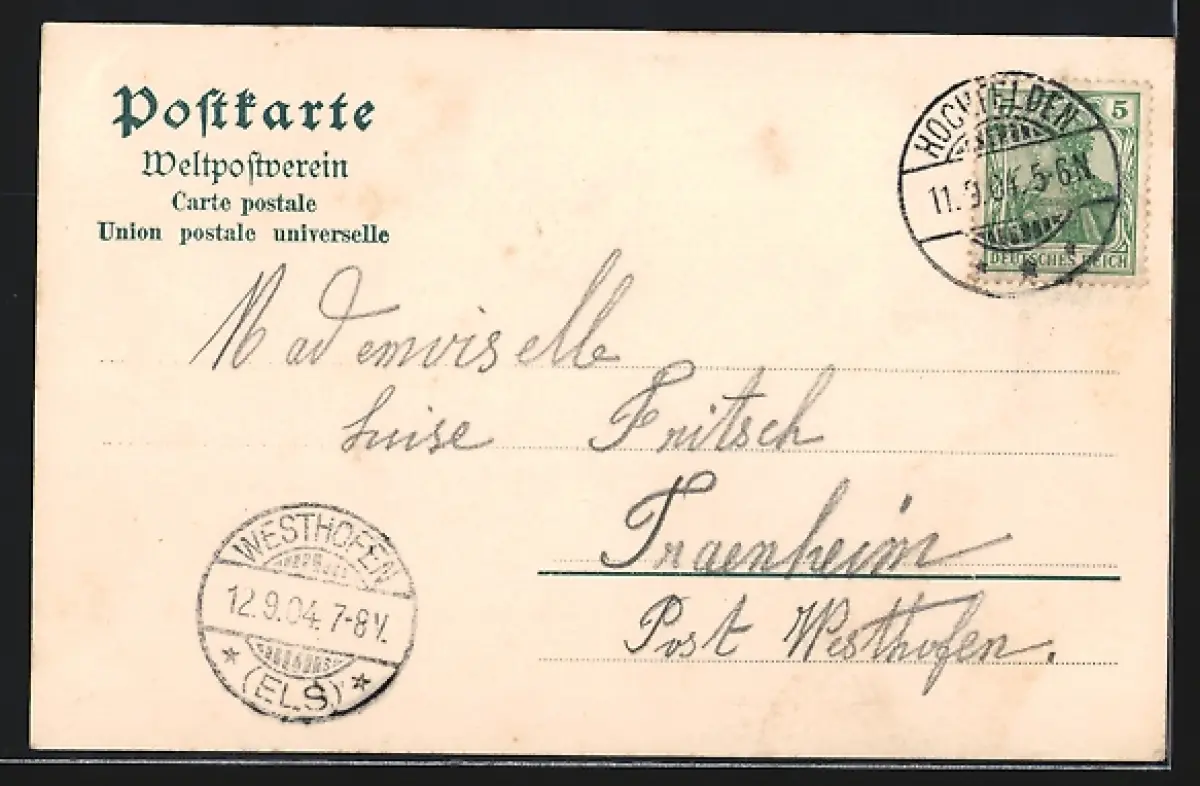 Postkarte
Weltpostverein
Carte postale
Union postale universelle
HOCHFELDEN
11.9.04. 5-6N
5
DEUTSCHES REICH
Mademoiselle
Luise Fritsch
Traenheim
Post Westhofen.
WESTHOFEN
12.9.04. 7-8V.
* (ELS.) *